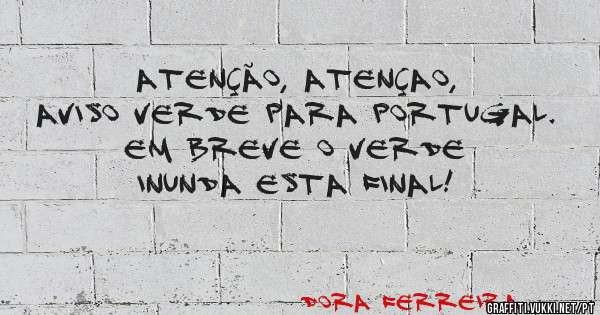 ATENÇÃO, ATENÇAO,
AVISO VERDE PARA PORTUGAL.
EM BREVE O VERDE
INUNDA ESTA FINAL!
DORA FERREIRA
GRAFFITI.VUKKI.NET/PT